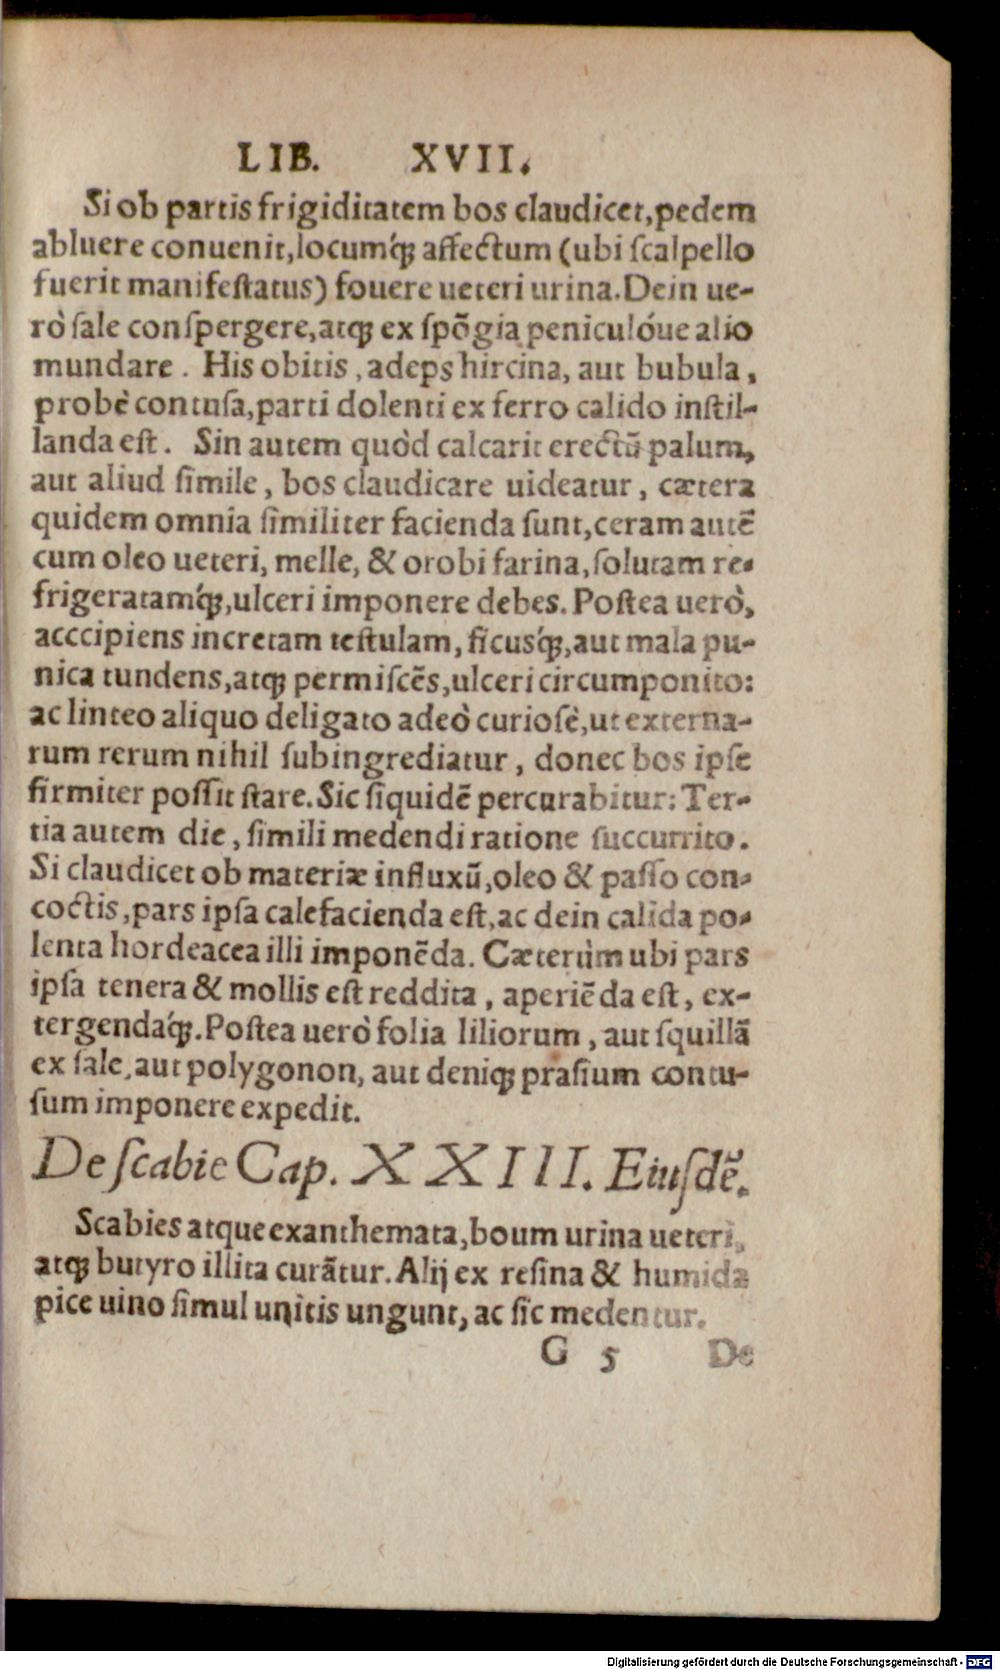 LIB. XVII.
Si ob partis frigiditatem bos claudicet, pedem
abluere conuenit, locumq́; affectum (ubi scalpello
fuerit manifestatus) fouere ueteri urina. Dein ue-
rò sale conspergere, atq; ex spõgia peniculóue alio
mundare. His obitis, adeps hircina, aut bubula,
probè contusa, parti dolenti ex ferro calido instil-
landa est. Sin autem quòd calcarit erectũ palum,
aut aliud simile, bos claudicare uideatur, cætera
quidem omnia similiter facienda sunt, ceram autẽ
cum oleo ueteri, melle, & orobi farina, solutam re-
frigeratamq́;, ulceri imponere debes. Postea uerò,
acccipiens incretam testulam, ficusq́;, aut mala pu-
nica tundens, atq; permiscẽs, ulceri circumponito:
ac linteo aliquo deligato adeò curiosè, ut externa-
rum rerum nihil subingrediatur, donec bos ipse
firmiter possit stare. Sic siquidẽ percurabitur: Ter-
tia autem die, simili medendi ratione succurrito.
Si claudicet ob materiæ influxũ, oleo & passo con-
coctis, pars ipsa calefacienda est, ac dein calida po-
lenta hordeacea illi imponẽda. Cæterùm ubi pars
ipsa tenera & mollis est reddita, aperiẽda est, ex-
tergendaq́;. Postea uerò folia liliorum, aut squillã
ex sale, aut polygonon, aut deniq; prasium contu-
sum imponere expedit.
De scabie Cap. XXIII. Eiusdẽ.
Scabies atque exanthemata, boum urina ueteri,
atq; butyro illita curãtur. Alij ex resina & humida
pice uino simul unitis ungunt, ac sic medentur.
G 5 De
Digitalisierung gefördert durch die Deutsche Forschungsgemeinschaft - DFG